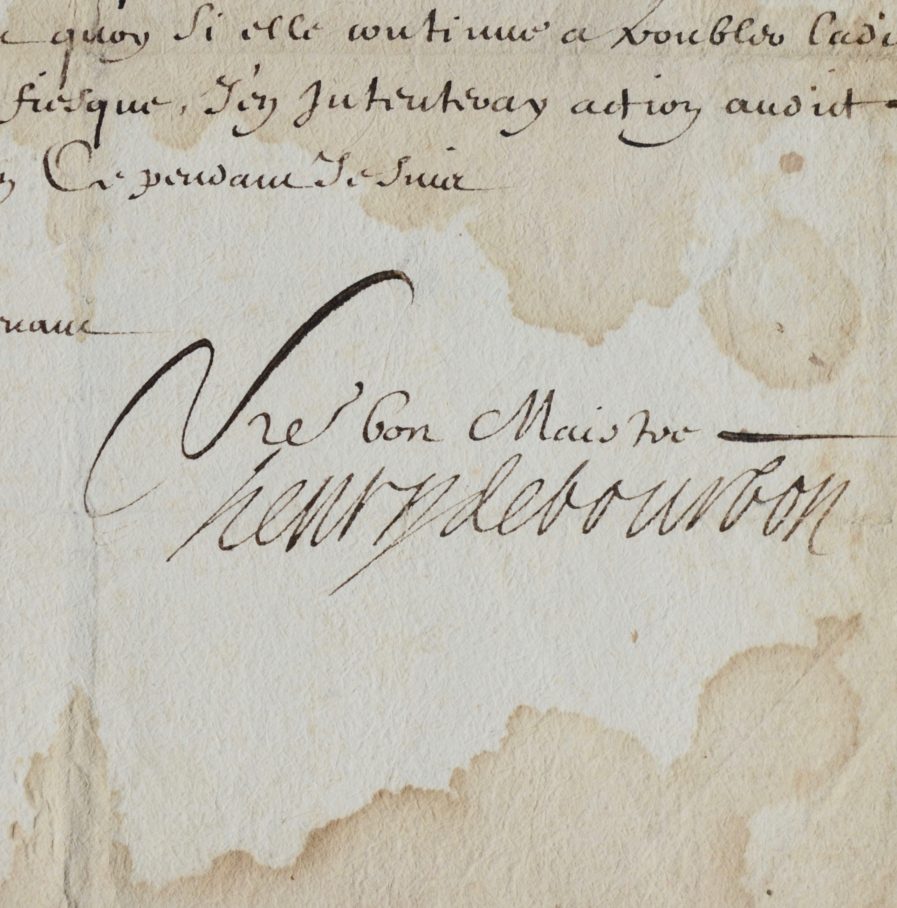 quoy Si elle continue a troubler ladi
fiesque, J'en Jntenteray action audit
Ce pendant Je Suis
Vre bon Maistre
henrydebourbon